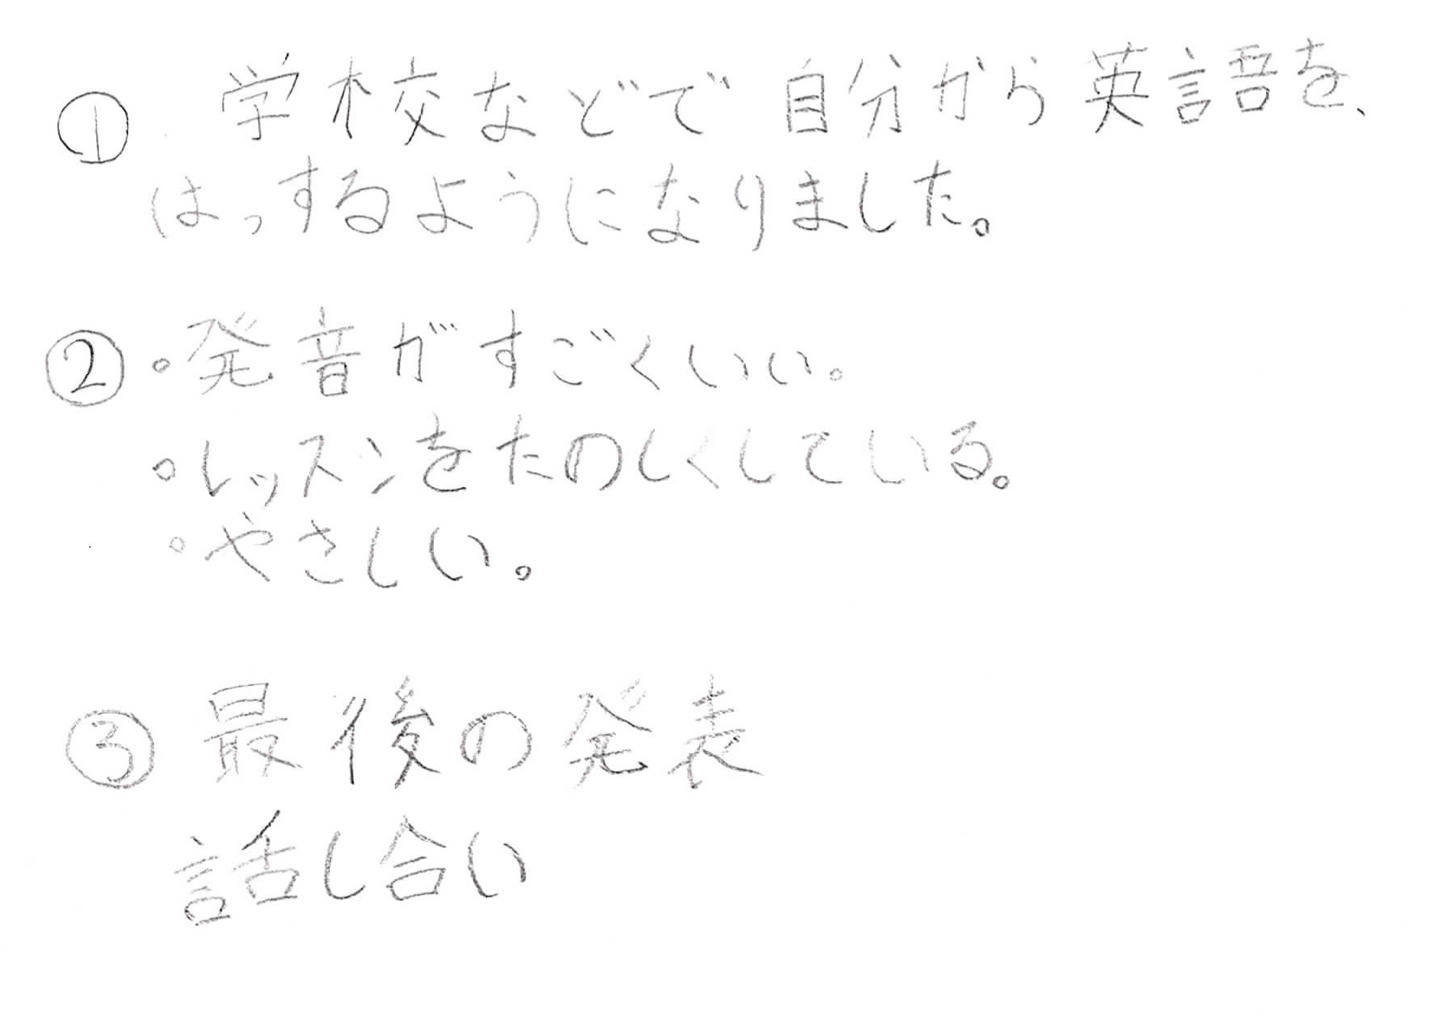 ① 学校などで自分から英語を、
はっするようになりました。
② ・発音がすごくいい。
・レッスンをたのしくしている。
・やさしい。
③ 最後の発表
話し合い